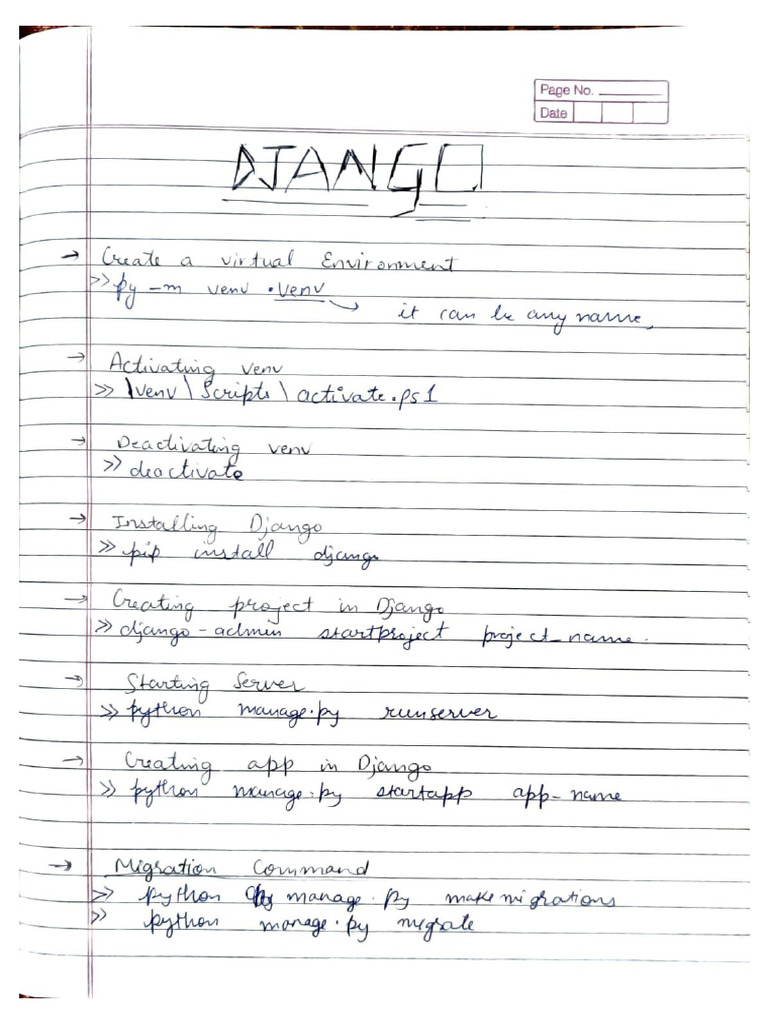 Page No.
Date
DJANGO
→ Create a virtual Environment
>> py -m venv .venv
it can be any name,
→ Activating venv
>> \venv\Scripts\activate.ps1
→ Deactivating venv
>> deactivate
→ Installing Django
>> pip install django
→ Creating project in Django
>> django-admin startproject project_name.
→ Starting Server
>> python manage.py runserver
→ Creating app in Django
>> python manage.py startapp app-name
→ Migration Command
>> python manage.py makemigrations
>> python manage.py migrate